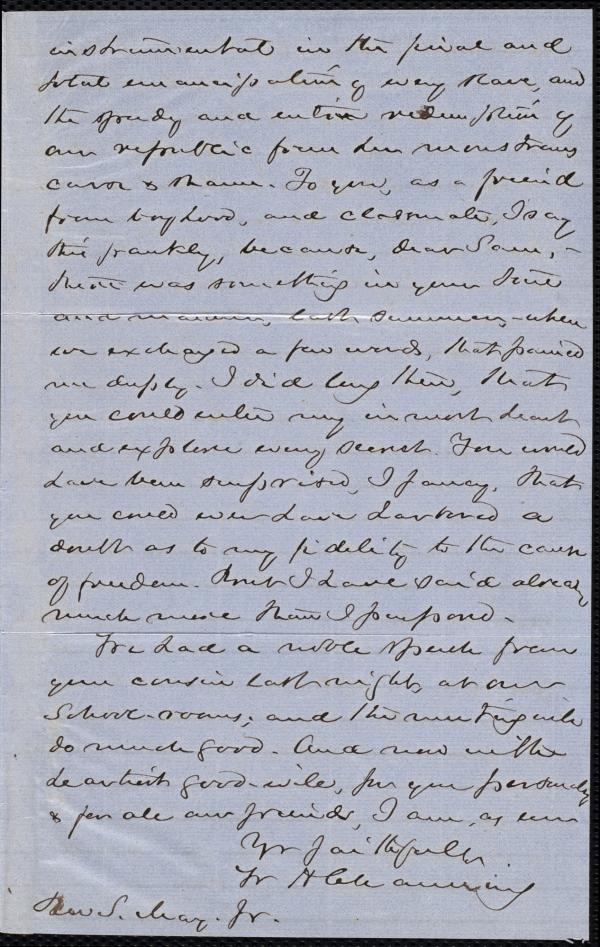 instrumental in the final and
total emancipation of every slave, and
the speedy and entire redemption of
our republic from her monstrous
curse & shame. To you, as a friend
from boyhood, and classmate, I say
this frankly, because, dear Sam, –
there was something in your tone
and manner, last summer, – when
we exchanged a few words, that pained
me deeply. I did long then, that
you could enter my inmost heart
and explore every secret. You would
have been surprised, I fancy, that
you could ever have harbored a
doubt as to my fidelity to the cause
of freedom. But I have said already
much more than I purposed. –
We had a noble speech from
your cousin last night, at our
School-rooms; and the meeting will
do much good. And now with
heartiest good-will, for you personally
& for all our friends, I am, as ever
Yr faithfully
W H Channing
Rev S. May. Jr.